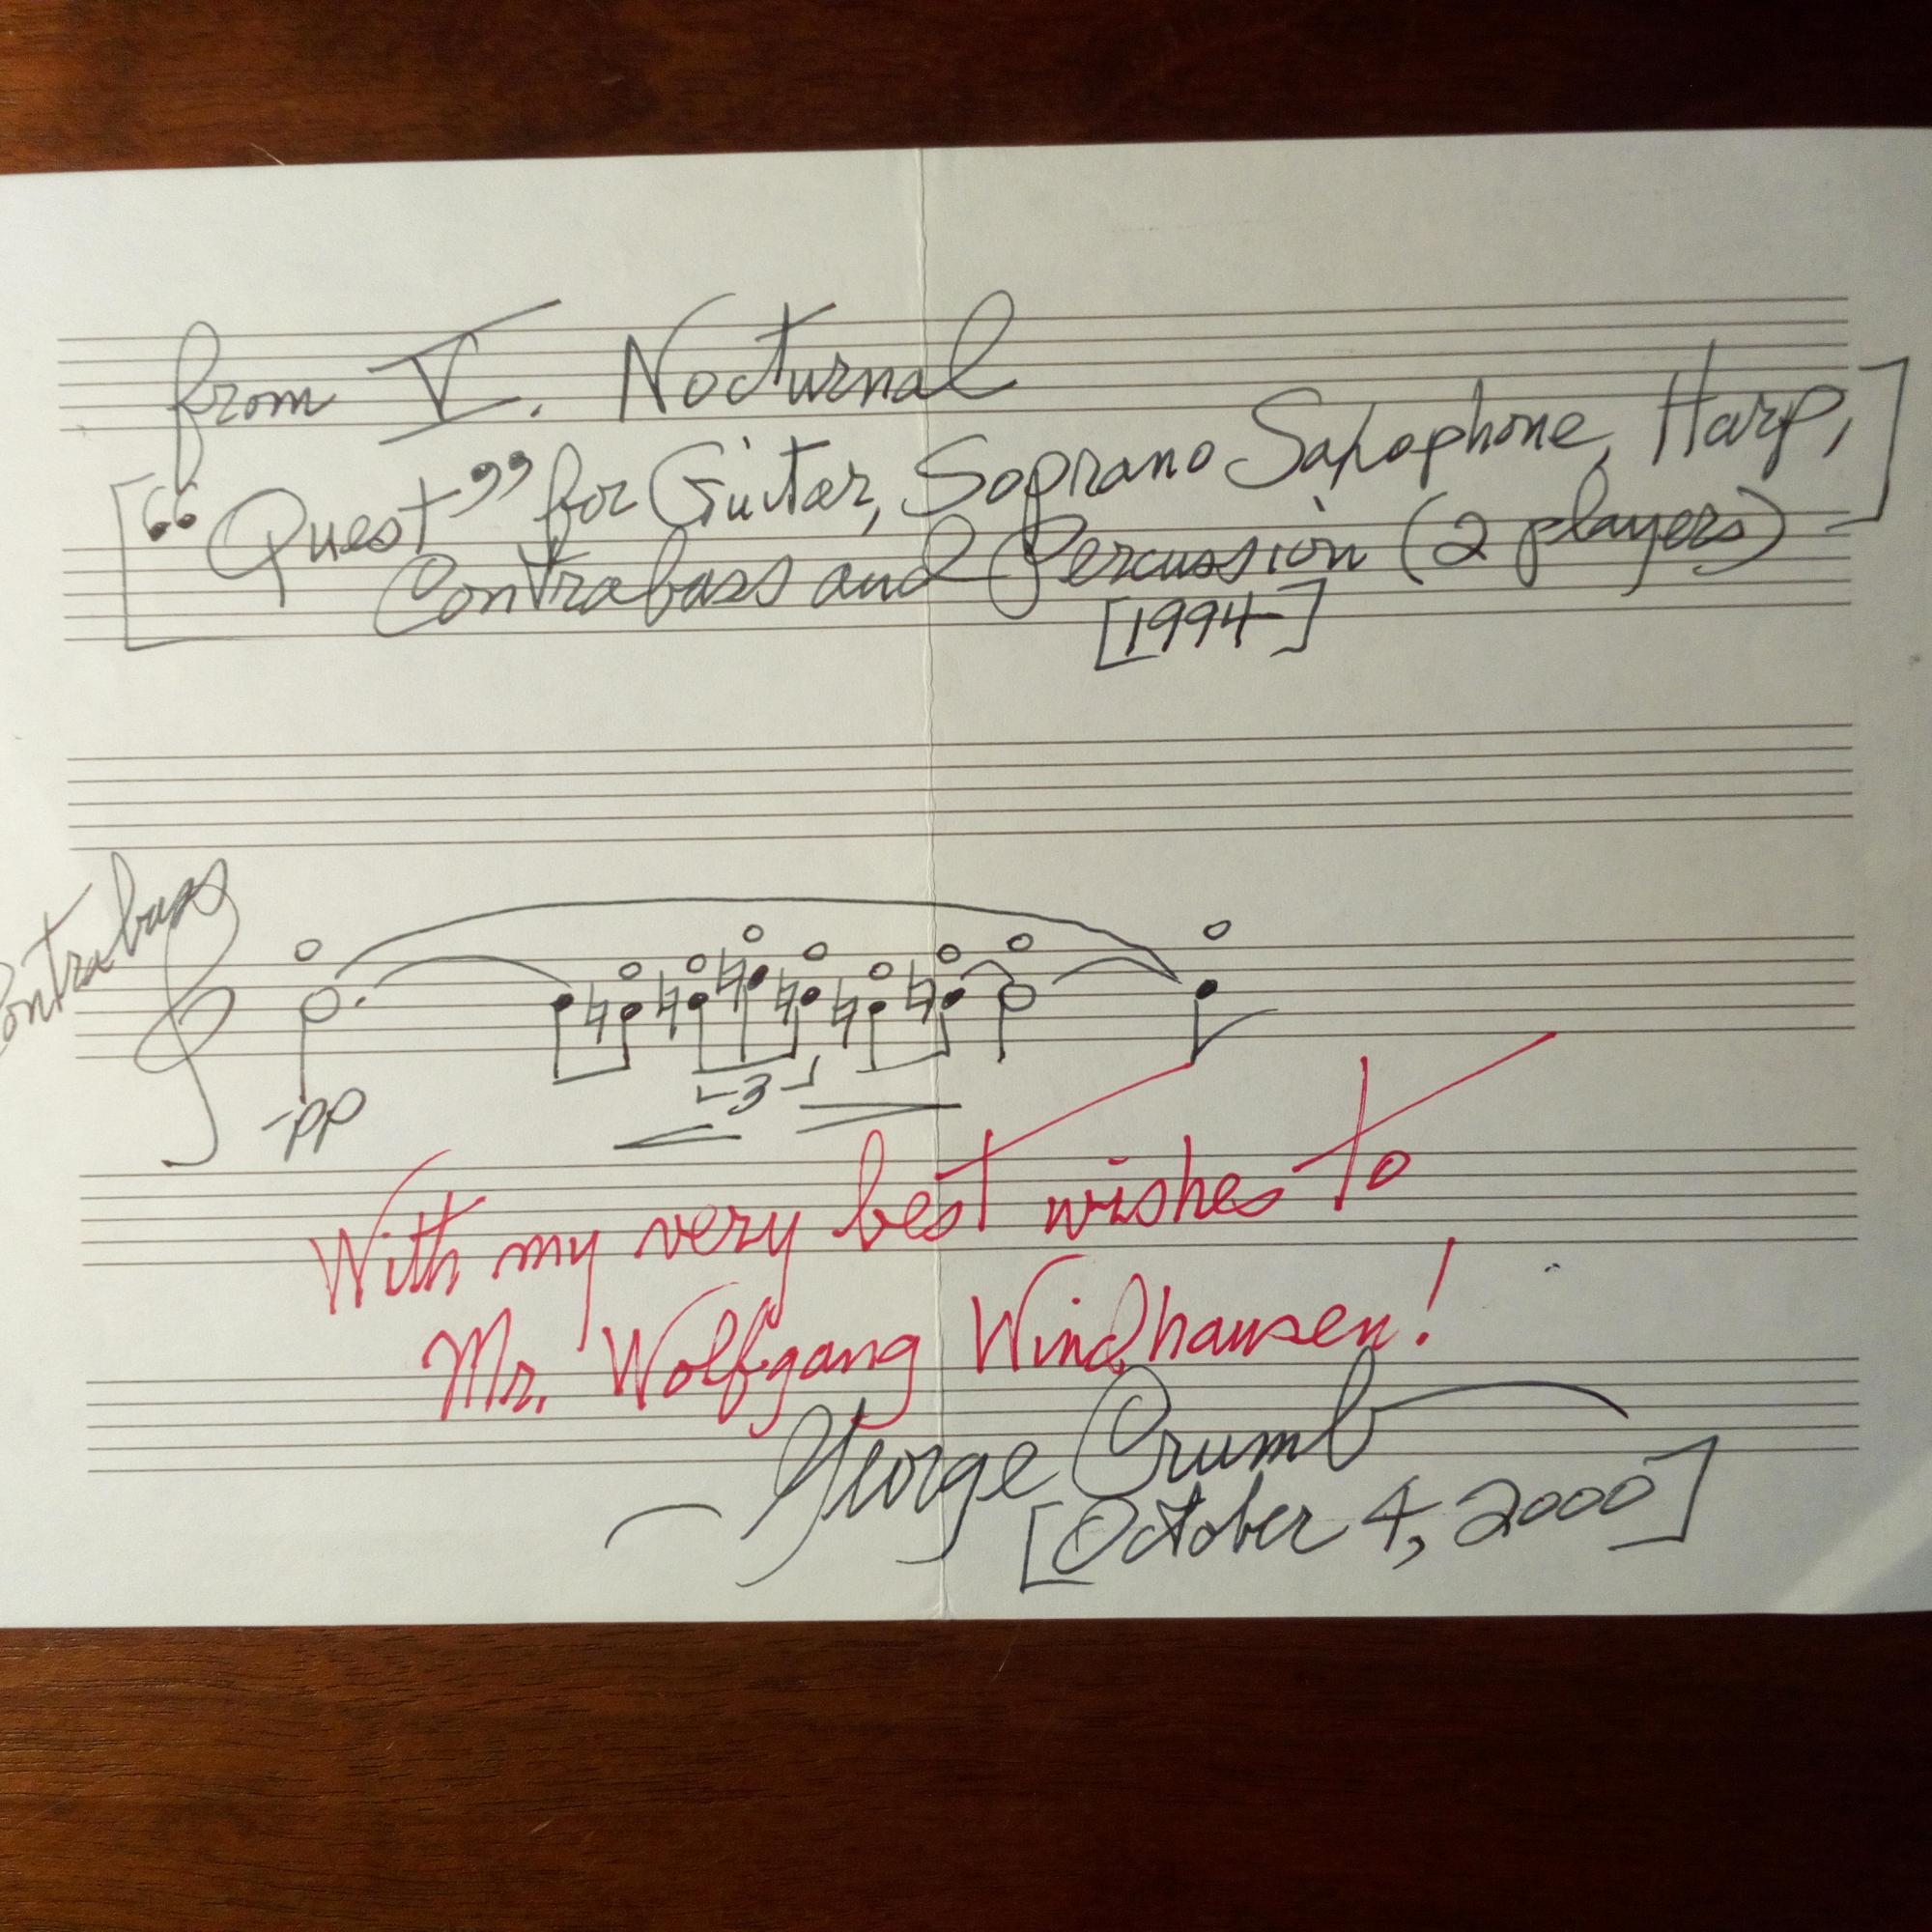 from V. Nocturnal
[“Quest” for Guitar, Soprano Saxophone, Harp,]
Contrabass and Percussion (2 players)
[1994]
Contrabass
pp
3
With my very best wishes to
Mr. Wolfgang Windhausen!
George Crumb
[October 4, 2000]